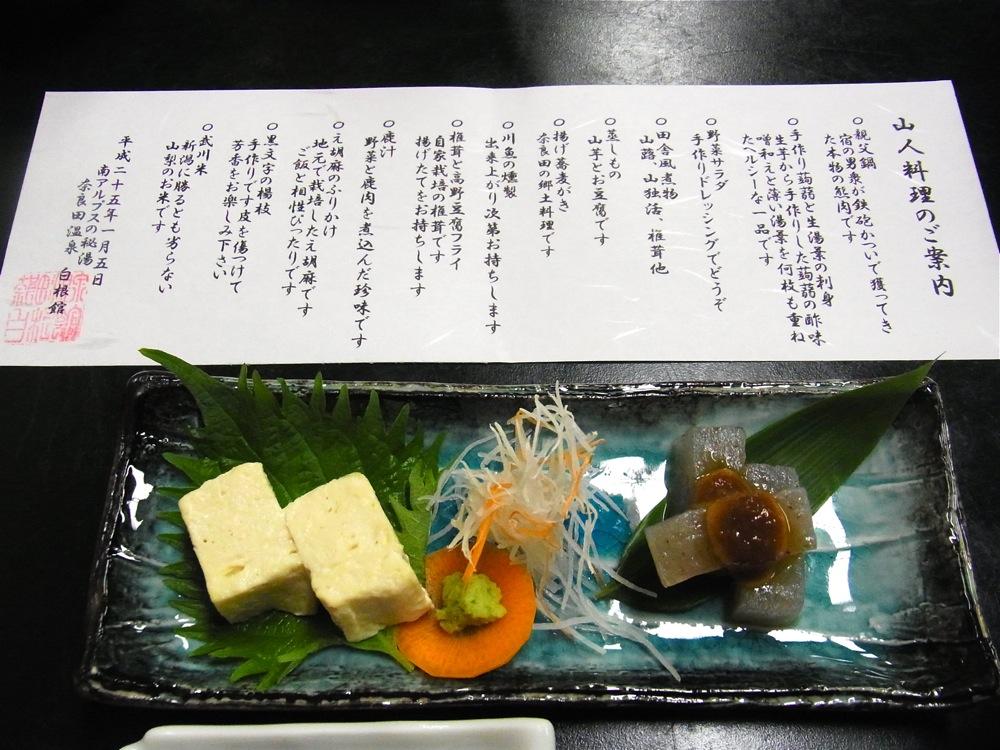 山人料理のご案内
○親父鍋
宿の男衆が鉄砲かついで獲ってき
た本物の熊肉です
○手作り蒟蒻と生湯葉の刺身
生芋から手作りした蒟蒻の酢味
噌和えと薄い湯葉を何枚も重ね
たヘルシーな一品です
○野菜サラダ
手作りドレッシングでどうぞ
○田舎風煮物
山蕗、山独活、椎茸他
○蒸しもの
山芋とお豆腐です
○揚げ蕎麦がき
奈良田の郷土料理です
○川魚の燻製
出来上がり次第お持ちします
○椎茸と高野豆腐フライ
自家栽培の椎茸です
揚げたてをお持ちします
○鹿汁
野菜と鹿肉を煮込んだ珍味です
○え胡麻のふりかけ
地元で栽培したえ胡麻です
ご飯と相性ぴったりです
○黒文字の楊枝
手作りです皮を傷つけて
芳香をお楽しみ下さい
○武川米
新潟に勝るとも劣らない
山梨のお米です
平成二十五年一月五日
南アルプスの秘湯
奈良田温泉 白根館